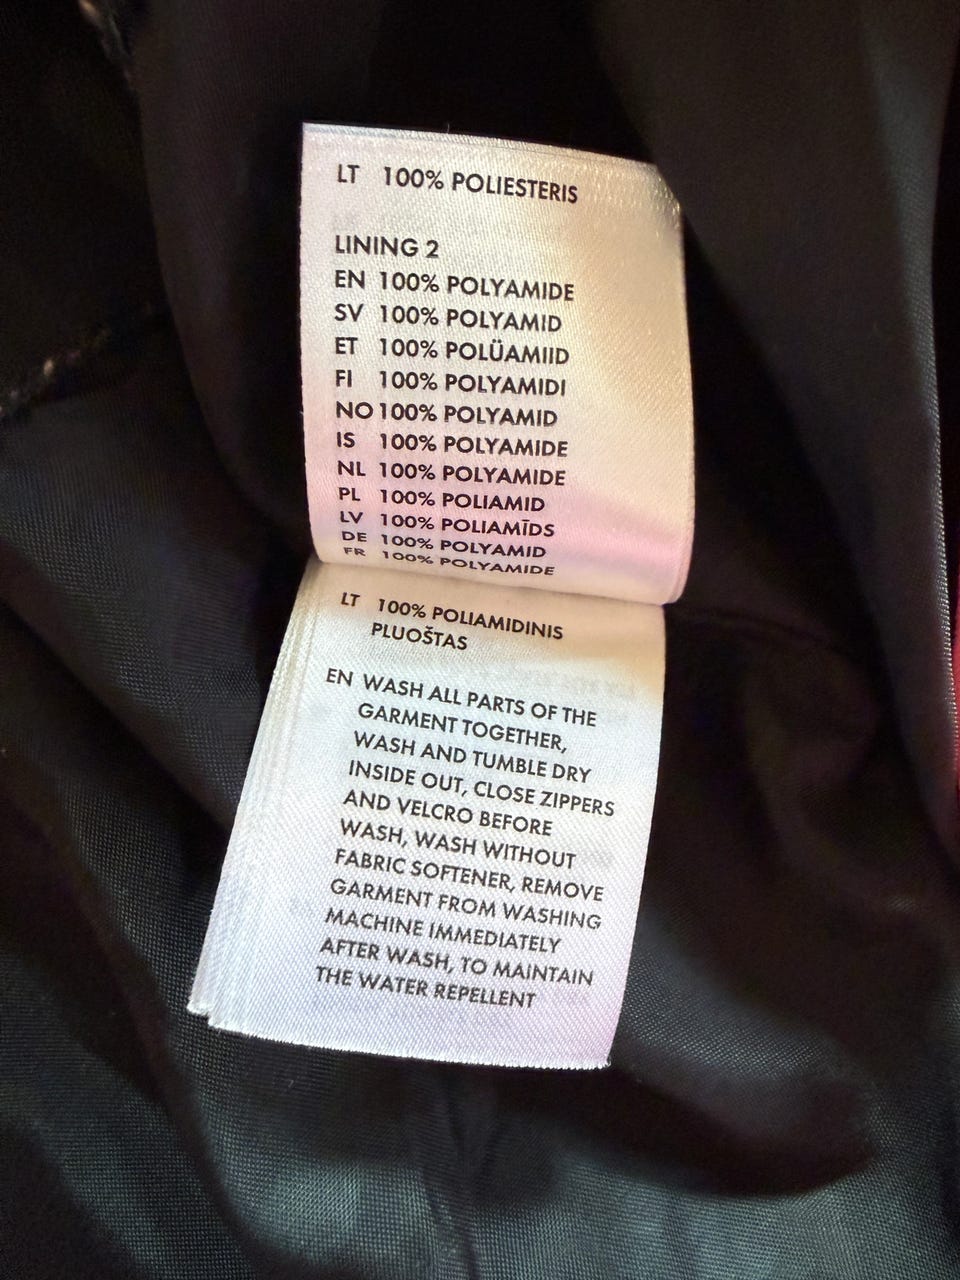 LT 100% POLIESTERIS
LINING 2
EN 100% POLYAMIDE
SV 100% POLYAMID
ET 100% POLÜAMIID
FI 100% POLYAMIDI
NO 100% POLYAMID
IS 100% POLYAMIDE
NL 100% POLYAMIDE
PL 100% POLIAMID
LV 100% POLIAMĪDS
DE 100% POLYAMID
FR 100% POLYAMIDE
LT 100% POLIAMIDINIS
PLUOŠTAS
EN WASH ALL PARTS OF THE
GARMENT TOGETHER,
WASH AND TUMBLE DRY
INSIDE OUT, CLOSE ZIPPERS
AND VELCRO BEFORE
WASH, WASH WITHOUT
FABRIC SOFTENER, REMOVE
GARMENT FROM WASHING
MACHINE IMMEDIATELY
AFTER WASH, TO MAINTAIN
THE WATER REPELLENT